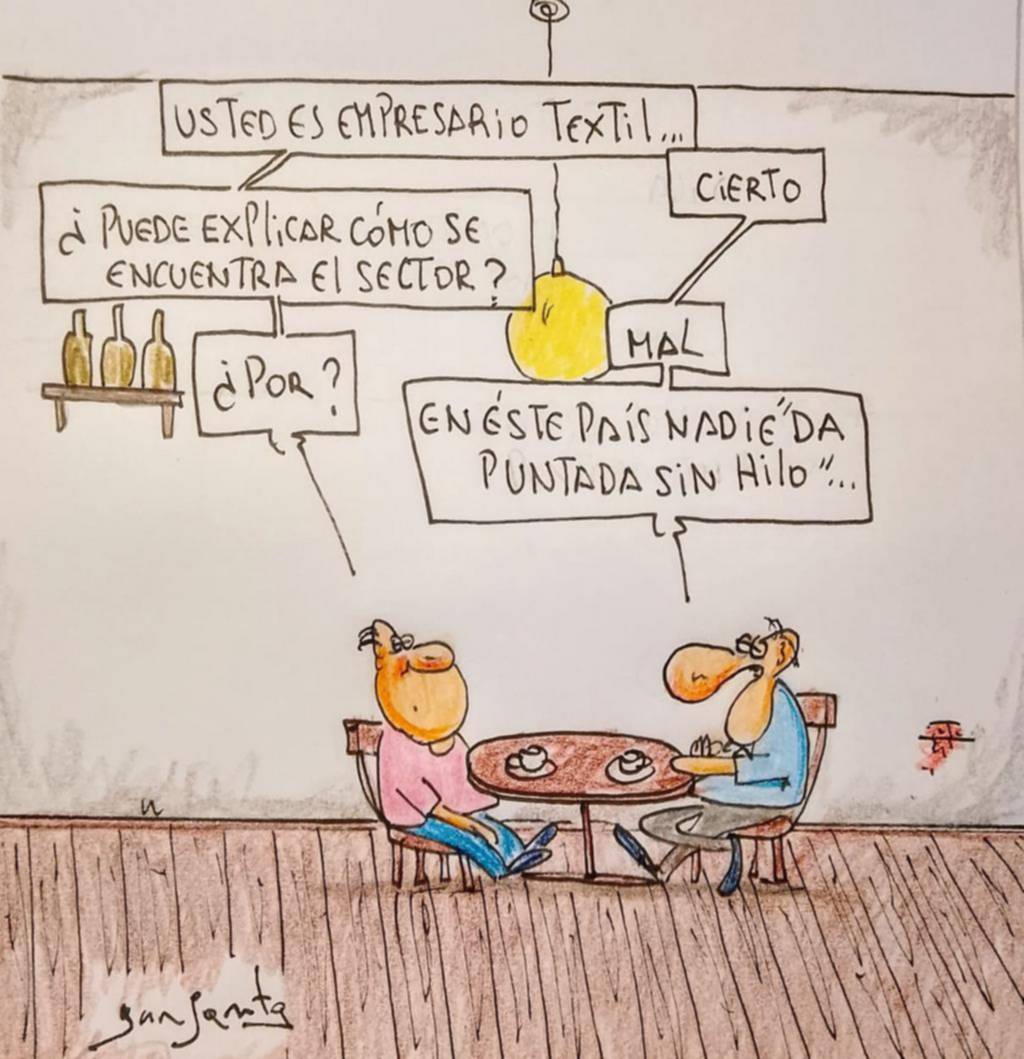 USTED ES EMPRESARIO TEXTIL...
CIERTO
¿PUEDE EXPLICAR CÓMO SE
ENCUENTRA El SECTOR?
MAL
¿POR?
EN ÉSTE PAÍS NADIE "DA
PUNTADA SIN HILO"...